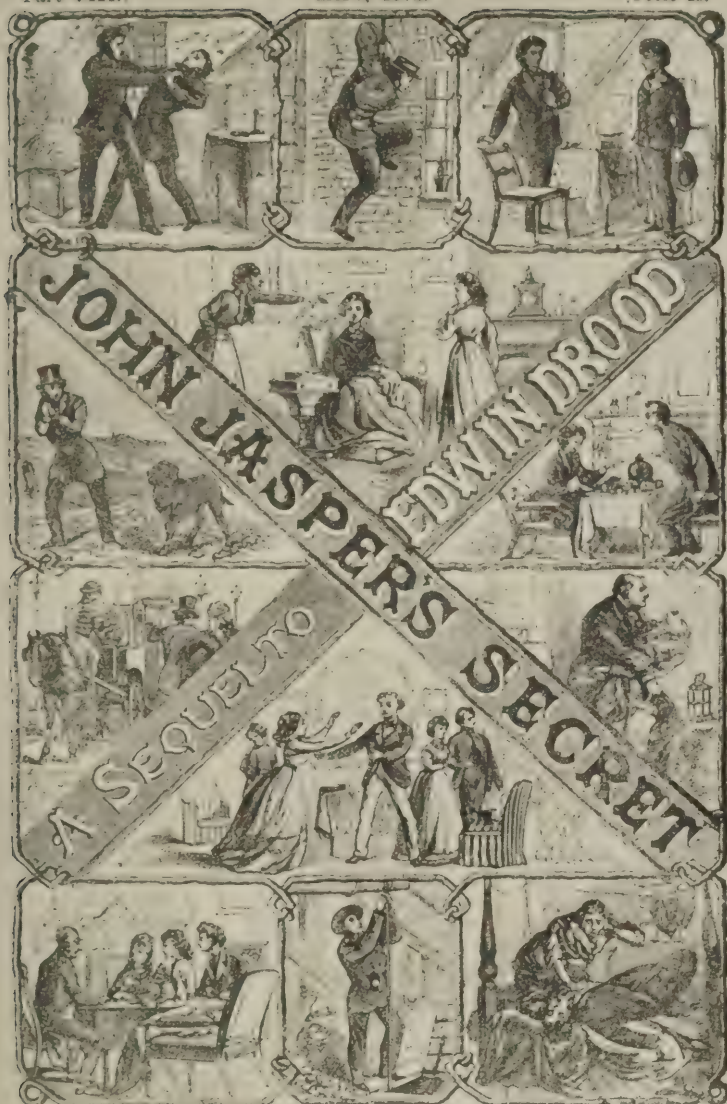 JOHN JASPER'S SECRET
A SEQUEL TO
EDWIN DROOD